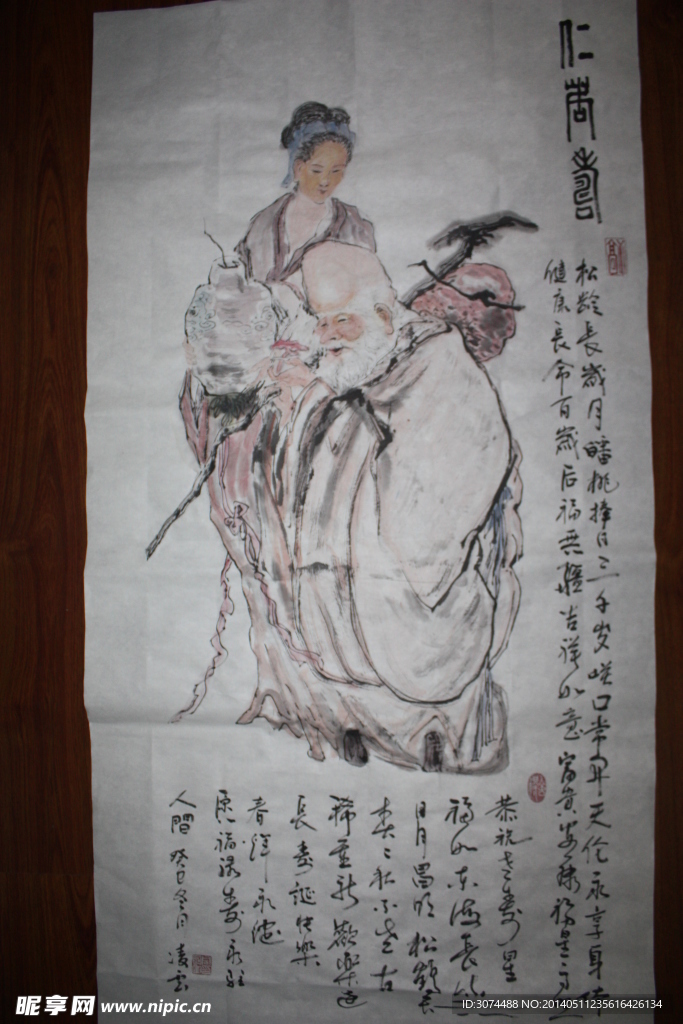 仁者寿
松龄长岁月蟠桃捧日三千岁咲口常开天伦永享身体
健康长命百岁后福无疆吉祥如意富贵安康福星高照
恭祝老寿星
福如东海长流
日月昌明松鹤长
春不老古
稀重新欢乐远
长寿诞快乐
春洋永浓
愿福禄寿永驻
人间 癸巳冬月 凌云
昵享网 www.nipic.cn
ID:3074488 NO:20140511235616426134